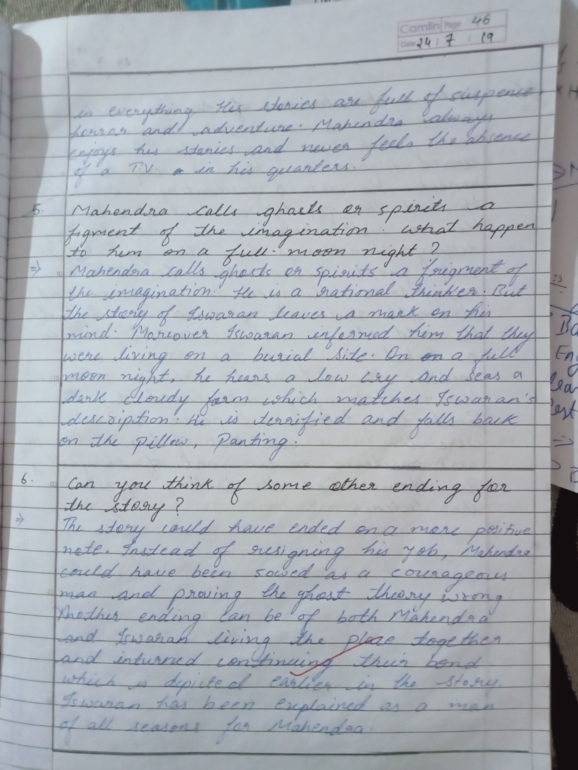 Camlin Page 46
Date 24 / 7 / 19
in everything. His stories are full of suspense
horror and adventure. Mahendra always
enjoys his stories and never feels the absence
of a TV in his quarters.
5. Mahendra calls ghosts or spirits a
figment of the imagination. what happen
to him on a full-moon night?
⇒ Mahendra calls ghosts or spirits a frigment of
the imagination. He is a rational thinker. But
the story of Iswaran leaves a mark on his
mind. Moreover Iswaran informed him that they
were living on a burial site. On on a full
moon night, he hears a low cry and seas a
dark cloudy form which matches Iswaran's
description. He is terrified and falls back
on the pillow, Panting.
6. Can you think of some other ending for
the story?
⇒ The story could have ended on a more positive
note. Instead of resigning his job, Mahendra
could have been sowed as a courageous
man and proving the ghost theory wrong
Another ending can be of both Mahendra
and Iswaran living the place together
and inturned continuing their bond
which is dipicted earlier in the story
Iswaran has been explained as a man
of all seasons for Mahendra.